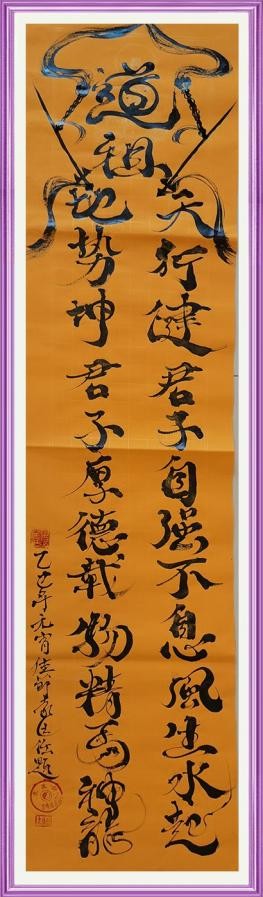 道祖
天行健君子自强不息風生水起
地势坤君子厚德载物精馬神龍
乙巳年元宵佳節
题